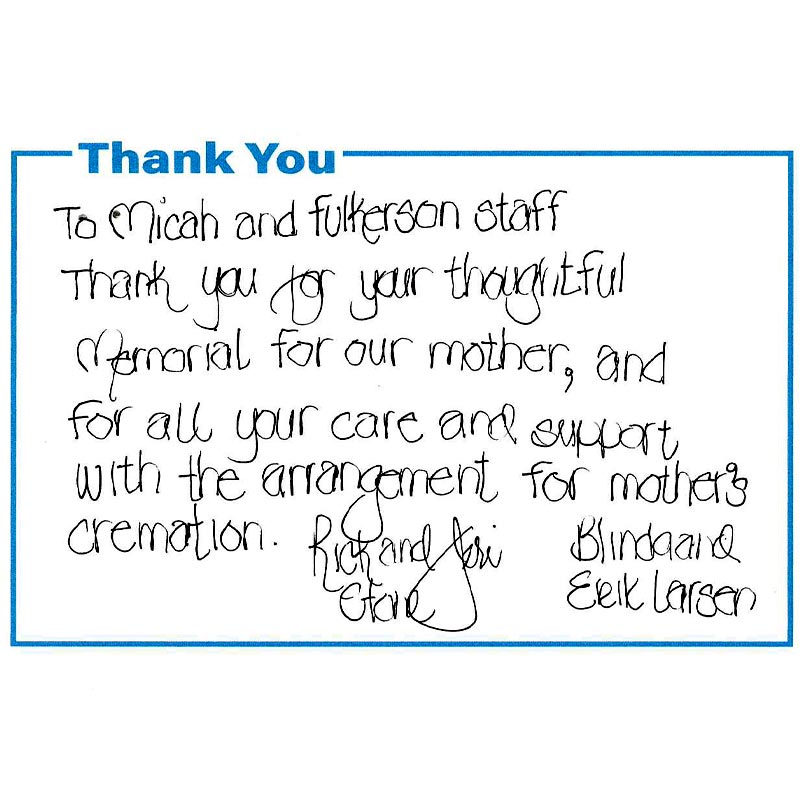 Thank You
To Micah and Fulkerson staff
Thank you for your thoughtful
Memorial for our mother, and
for all your care and support
with the arrangement for mother's
cremation. Rick and
Erik Larsen